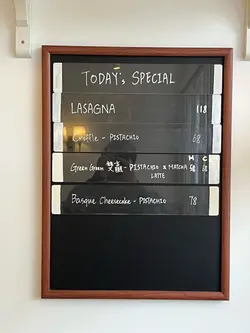 TODAY'S SPECIAL
LASAGNA 118
Croffle - PISTACHIO 68
H C
Green Green 雙重 - PISTACHIO x MATCHA 58 68
LATTE
Basque Cheesecake - PISTACHIO 78